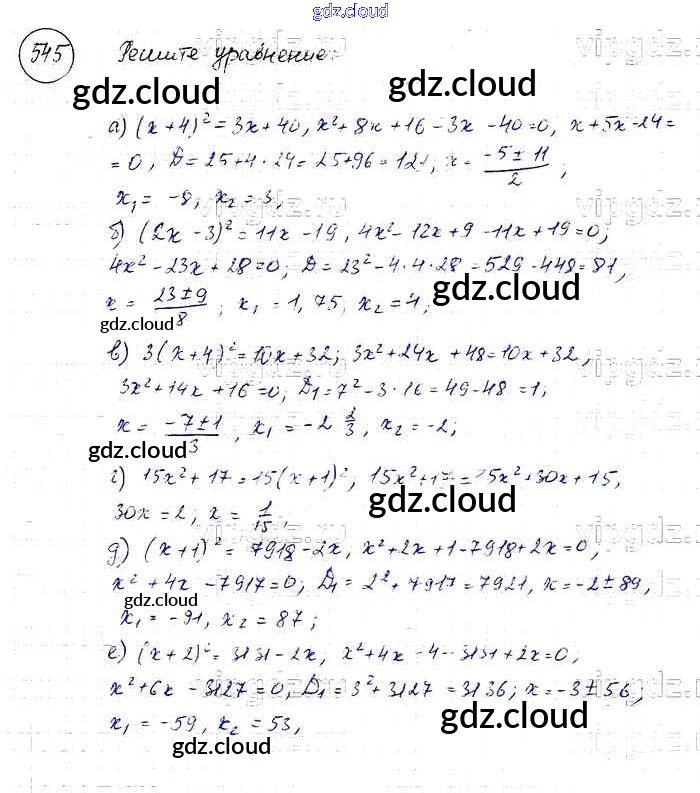 gdz.cloud
545 Решите уравнение:
gdz.cloud gdz.cloud
а) (x+4)² = 3x+40, x²+8x+16-3x-40=0, x+5x-24=
=0, D=25+4·24=25+96=121, x = (-5±11)/2;
x₁ = -8, x₂ = 3,
б) (2x-3)² = 11x-19, 4x²-12x+9-11x+19=0;
4x²-23x+28=0; D=23²-4·4·28=529-448=81,
x = (23±9)/8; x₁ = 1,75, x₂ = 4;
gdz.cloud
gdz.cloud
в) 3(x+4)² = 10x+32; 3x²+24x+48=10x+32,
3x²+14x+16=0; D₁=7²-3·16=49-48=1;
x = (-7±1)/3, x₁ = -2 2/3, x₂ = -2;
gdz.cloud
г) 15x²+17=15(x+1)²; 15x²+17=15x²+30x+15,
gdz.cloud
30x=2, x = 1/15,
д) (x+1)² = 7918-2x, x²+2x+1-7918+2x=0,
x²+4x-7917=0; D₁=2²+7917=7921, x=-2±89,
gdz.cloud
x₁ = -91, x₂ = 87;
е) (x+2)² = 3131-2x; x²+4x-4-3131+2x=0,
x²+6x-3127=0, D₁=3²+3127=3136; x=-3±56,
gdz.cloud
x₁ = -59, x₂ = 53,
gdz.cloud
vipgdz.ru